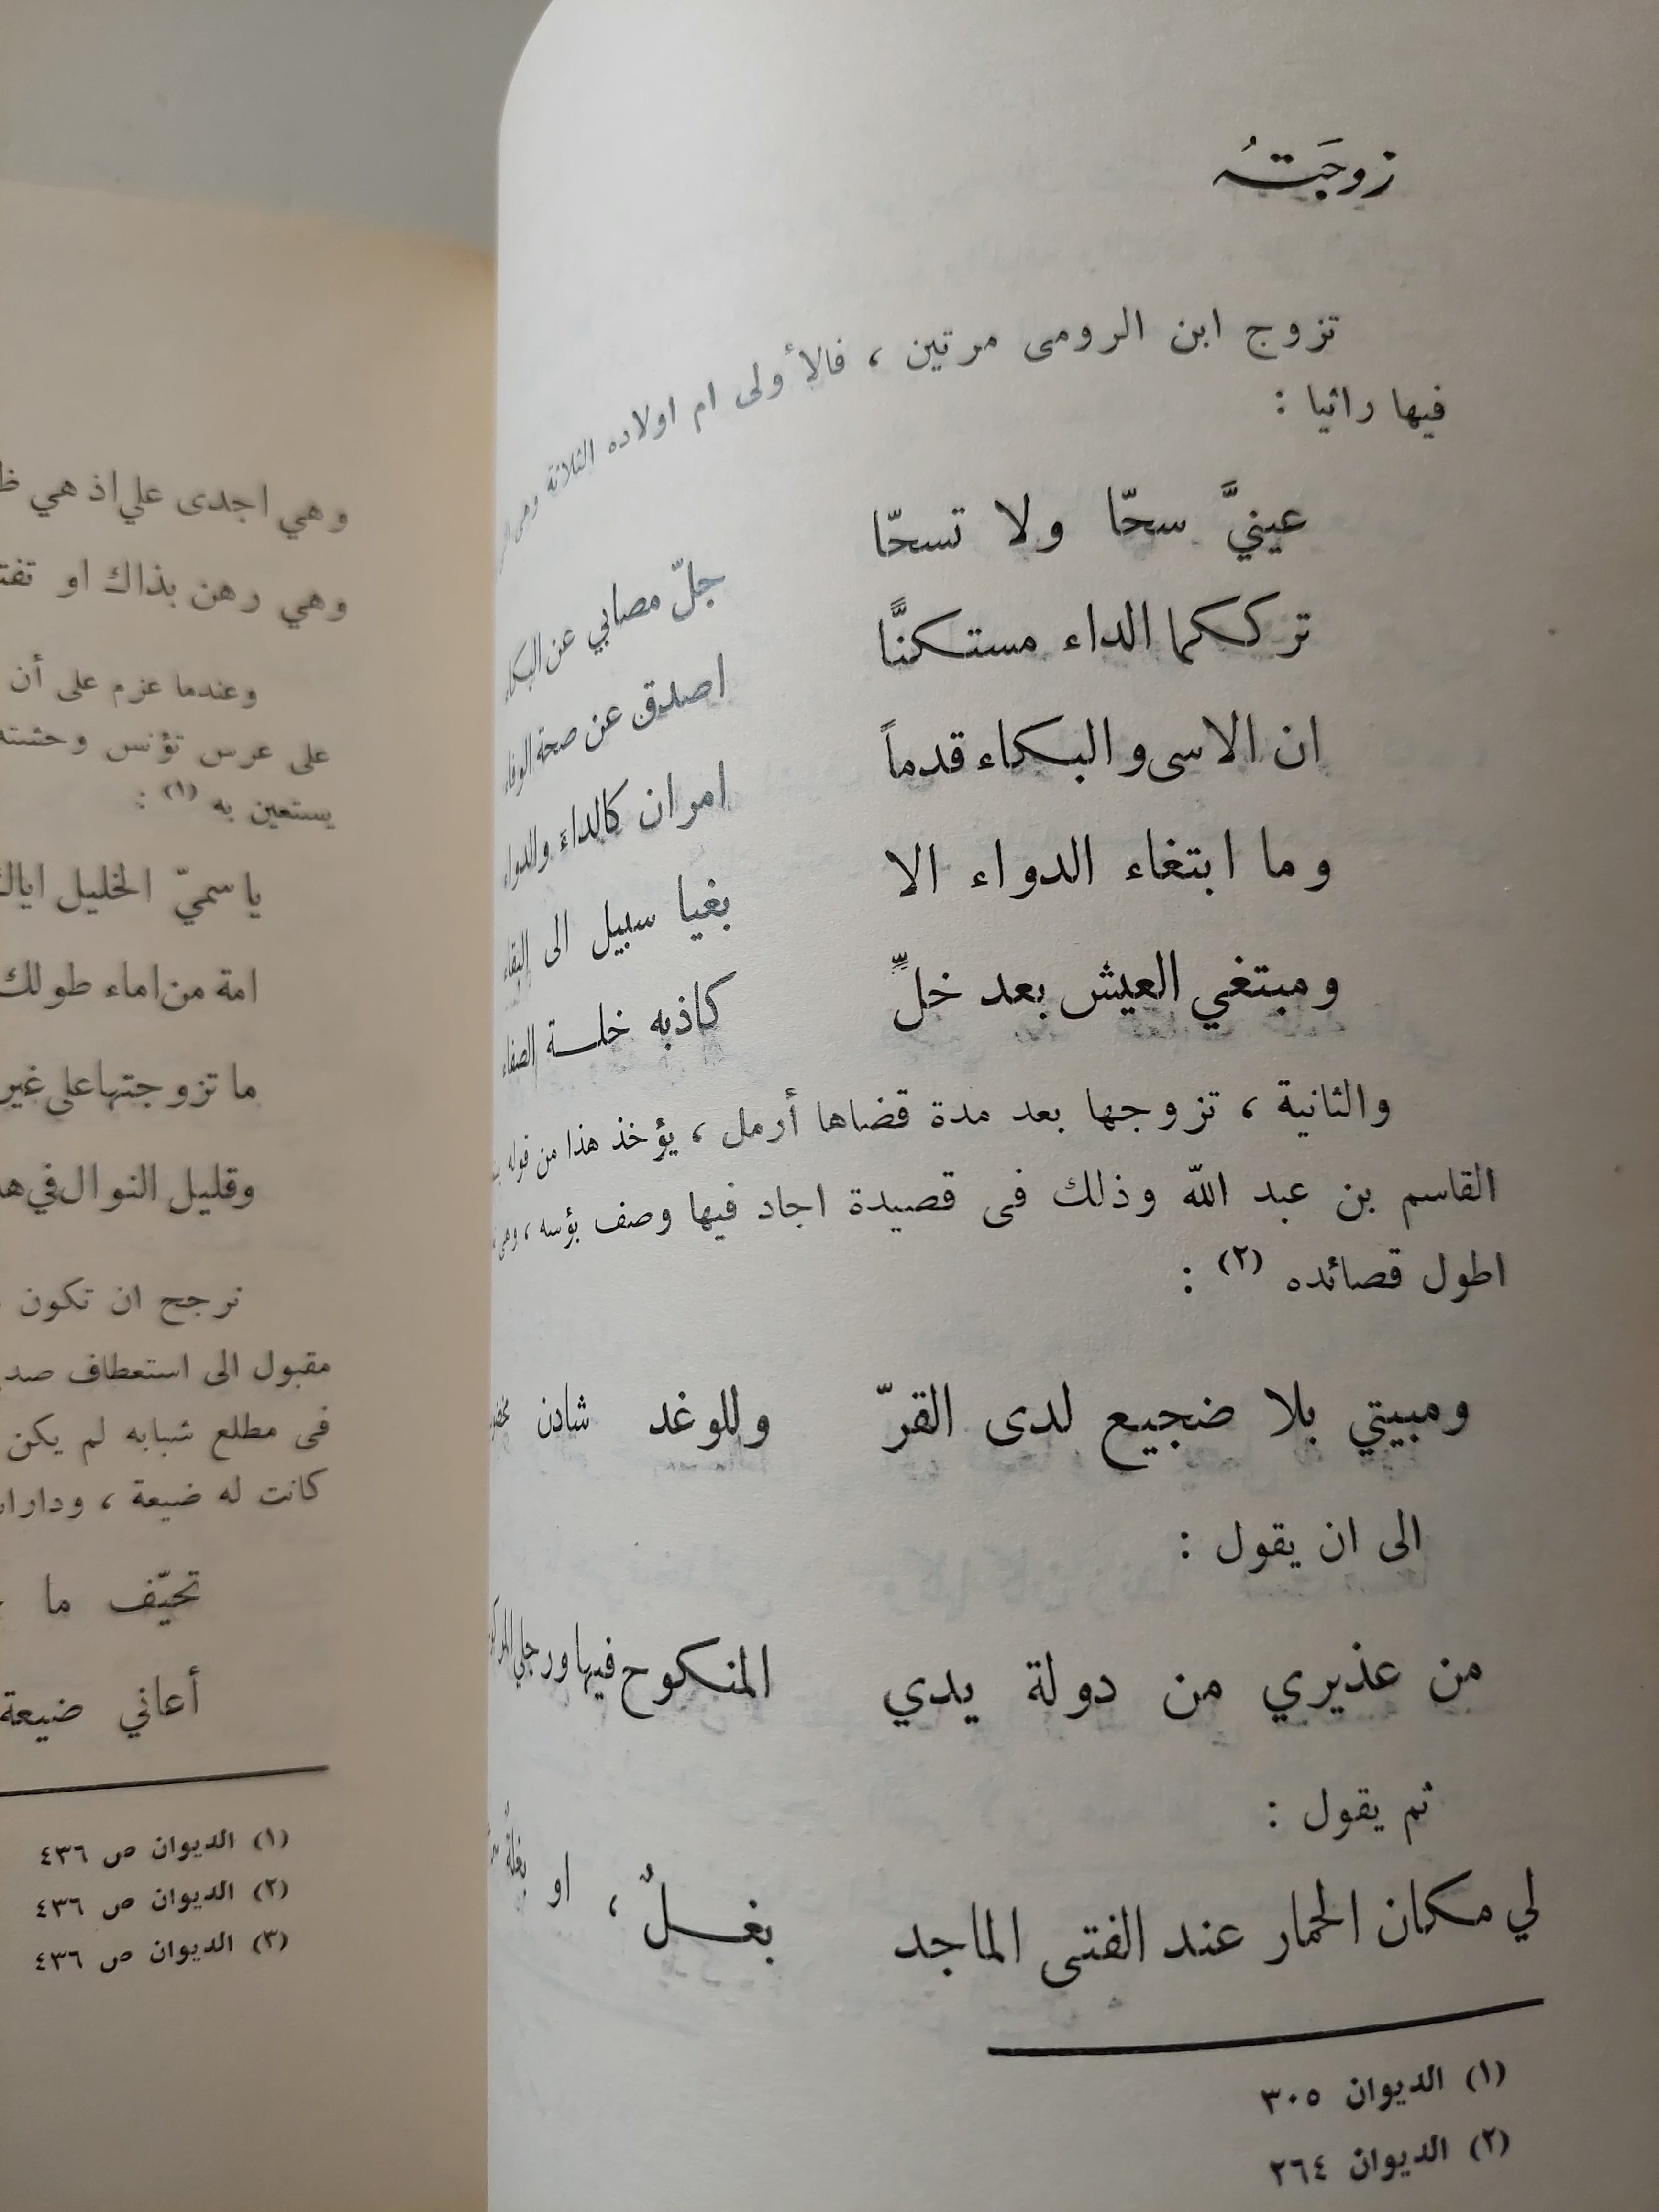 زوجَتهُ
تزوج ابن الرومى مرتين ، فالأولى ام اولاده الثلاثة وهى
فيها راثيا :
عينيَّ سحّا ولا تسحّا جلّ مصابي عن البكاء
تركـكما الداء مستكنًّا اصدق عن صحة الوفاء
ان الاسى والبكاء قدماً امران كالداء والدواء
وما ابتغاء الدواء الا بغيا سبيل الى البقاء
ومبتغي العيش بعد خلٍّ كاذبه خلسة الصفاء
والثانية ، تزوجها بعد مدة قضاها أرمل ، يؤخذ هذا من قوله
القاسم بن عبد الله وذلك فى قصيدة اجاد فيها وصف بؤسه ، وهى
اطول قصائده (٢) :
ومبيتي بلا ضجيع لدى القرّ وللوغد شادن
الى ان يقول :
من عذيري من دولة يدي المنكوح فيها ورجلي
ثم يقول :
لي مكان الحمار عند الفتى الماجد بغـلٌ ، او بغلةٌ
(١) الديوان ٣٠٥
(٢) الديوان ٢٦٤
وهي اجدى علي اذ هي
وهي رهن بذاك او
وعندما عزم على أن
على عرس تؤنس وحشته
يستعين به (١) :
يا سميّ الخليل اياك
امة من اماء طولك
ما تزوجتها على غير
وقليل النوال في
نرجح ان تكون
مقبول الى استعطاف
فى مطلع شبابه لم يكن
كانت له ضيعة ،
تحيّف ما
أعاني ضيعة
(١) الديوان ص ٤٣٦
(٢) الديوان ص ٤٣٦
(٣) الديوان ص ٤٣٦